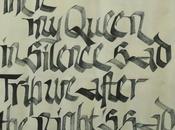 then
my Queen
in silence sad
Trip we after
the night's shad